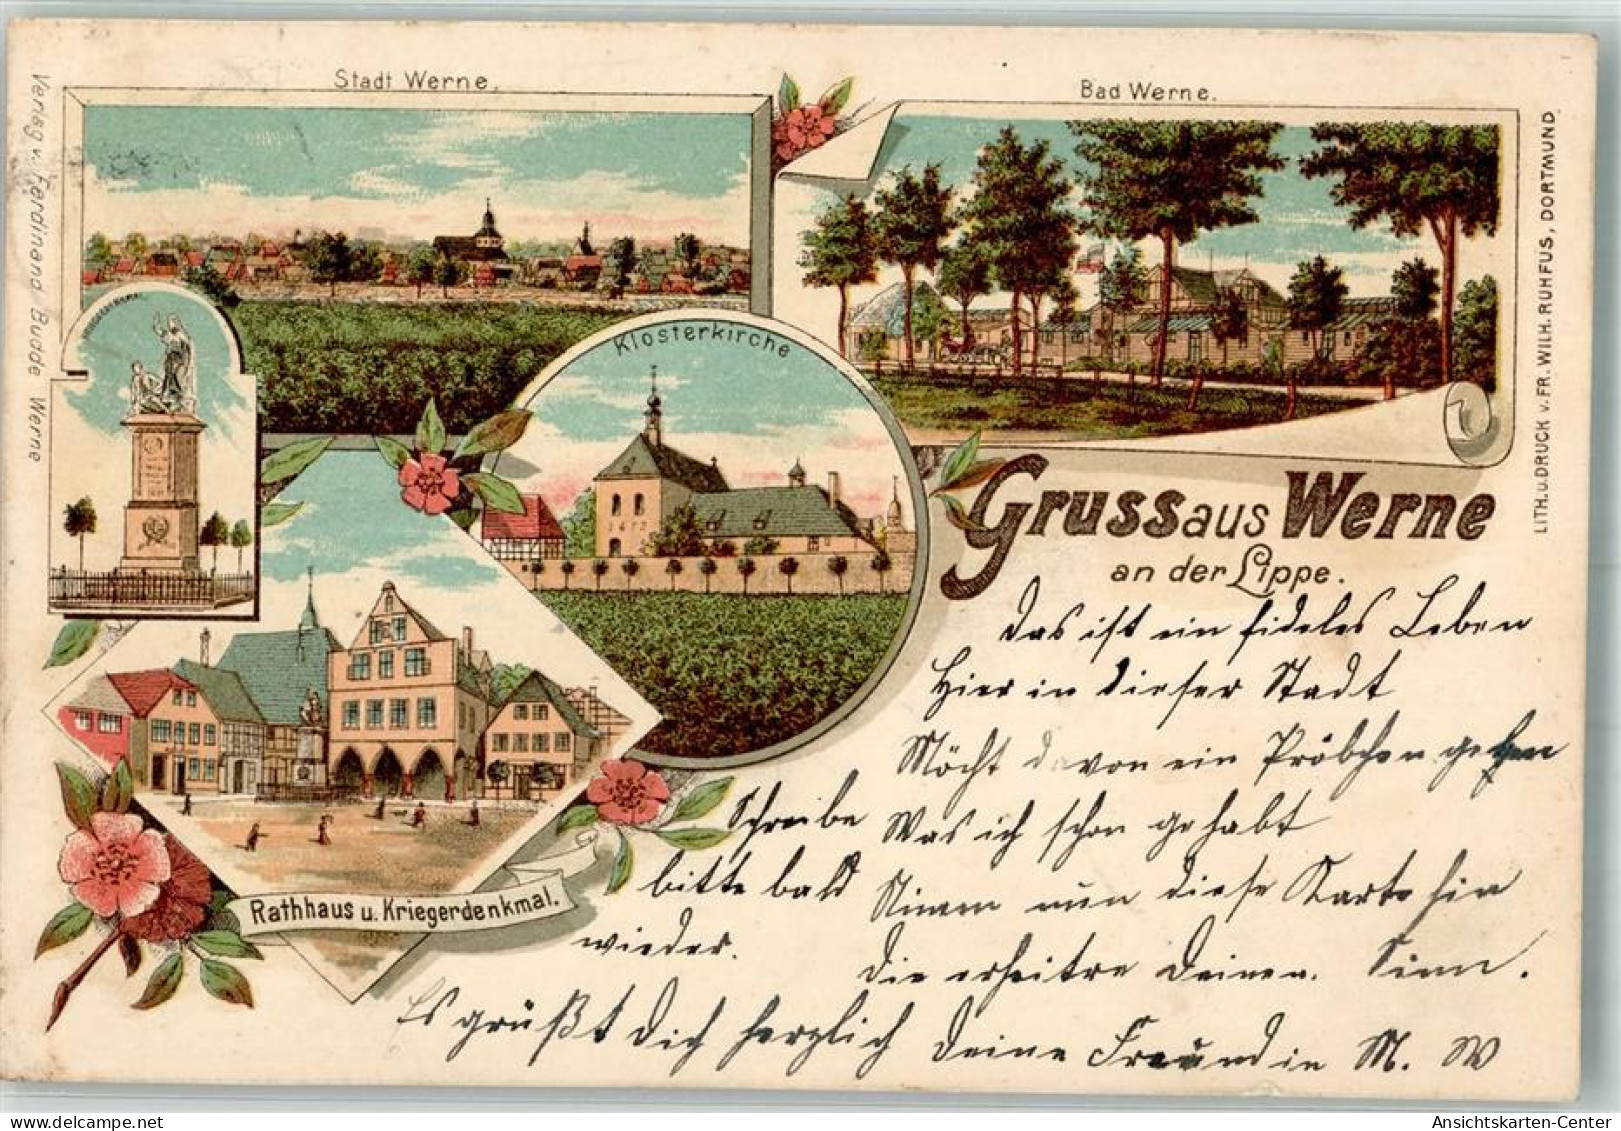 Stadt Werne.
Bad Werne.
Verlag v. Ferdinand Budde Werne
LITH. U. DRUCK V. FR. WILH. RUHFUS, DORTMUND
Klosterkirche
1677
Gruss aus Werne
an der Lippe.
Rathhaus u. Kriegerdenkmal.
Das ist ein fideles Leben
Hier in dieser Stadt
Möcht davon ein Pröbchen geben
Was ich schon gehabt
Nimm nun diese Karte hin
Die erheitre Deinen Sinn.
Schreibe
bitte bald
wieder.
Es grüßt Dich herzlich Deine Freundin M. W
Ansichtskarten-Center